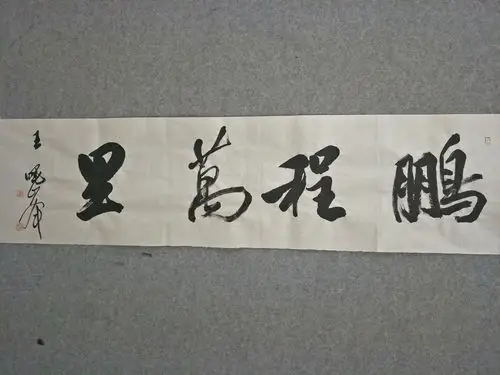 鵬程萬里
王